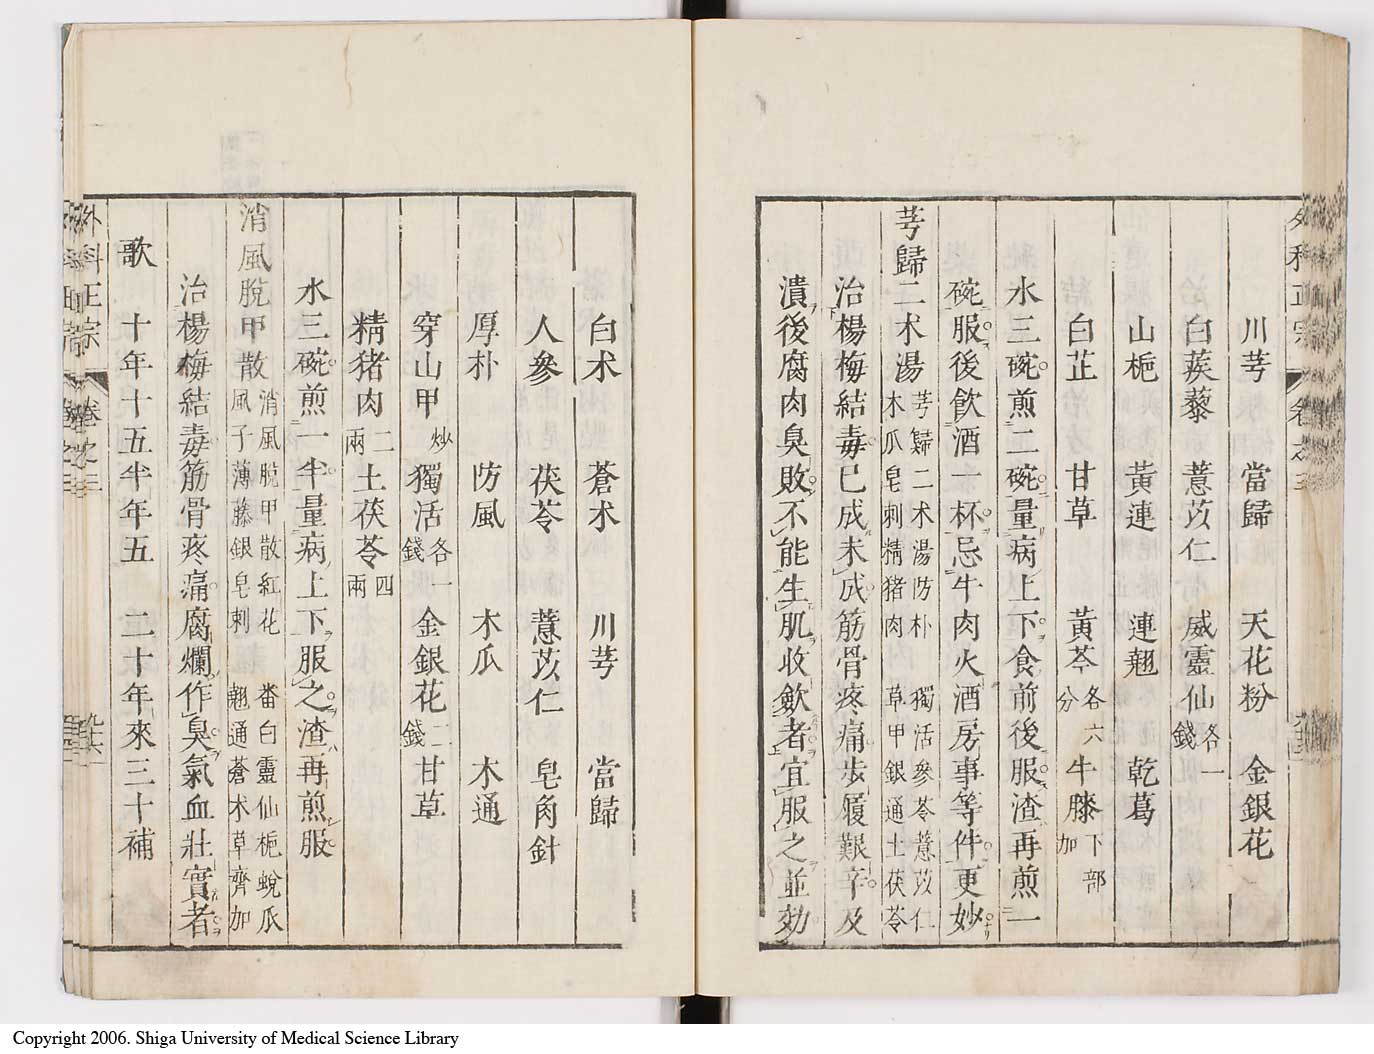 川芎 當歸 天花粉 金銀花
白蒺藜 薏苡仁 威靈仙各一錢
山梔 黃連 連翹 乾葛
白芷 甘草 黃芩各六分 牛膝下部加
水三碗煎二碗量病上下食前後服渣再煎一
碗服後飲酒一杯忌牛肉火酒房事等件更妙
芎歸二术湯 芎歸二术湯防朴 獨活參苓薏苡仁 木瓜皂刺精猪肉 草甲銀通土茯苓
治楊梅結毒已成未成筋骨疼痛步履艱辛及
潰後腐肉臭敗不能生肌收歛者宜服之並効
白术 蒼术 川芎 當歸
人參 茯苓 薏苡仁 皂角針
厚朴 防風 木瓜 木通
穿山甲炒 獨活各一錢 金銀花二錢 甘草
精猪肉二兩 土茯苓四兩
水三碗煎一半量病上下服之渣再煎服
消風脫甲散 消風脫甲散紅花 番白靈仙梔蛻瓜 風子薄藤銀皂刺 翹通蒼术草齊加
治楊梅結毒筋骨疼痛腐爛作臭氣血壯實者
歌 十年十五半年五 二十年來三十補
外科正宗 卷之三
Copyright 2006. Shiga University of Medical Science Library